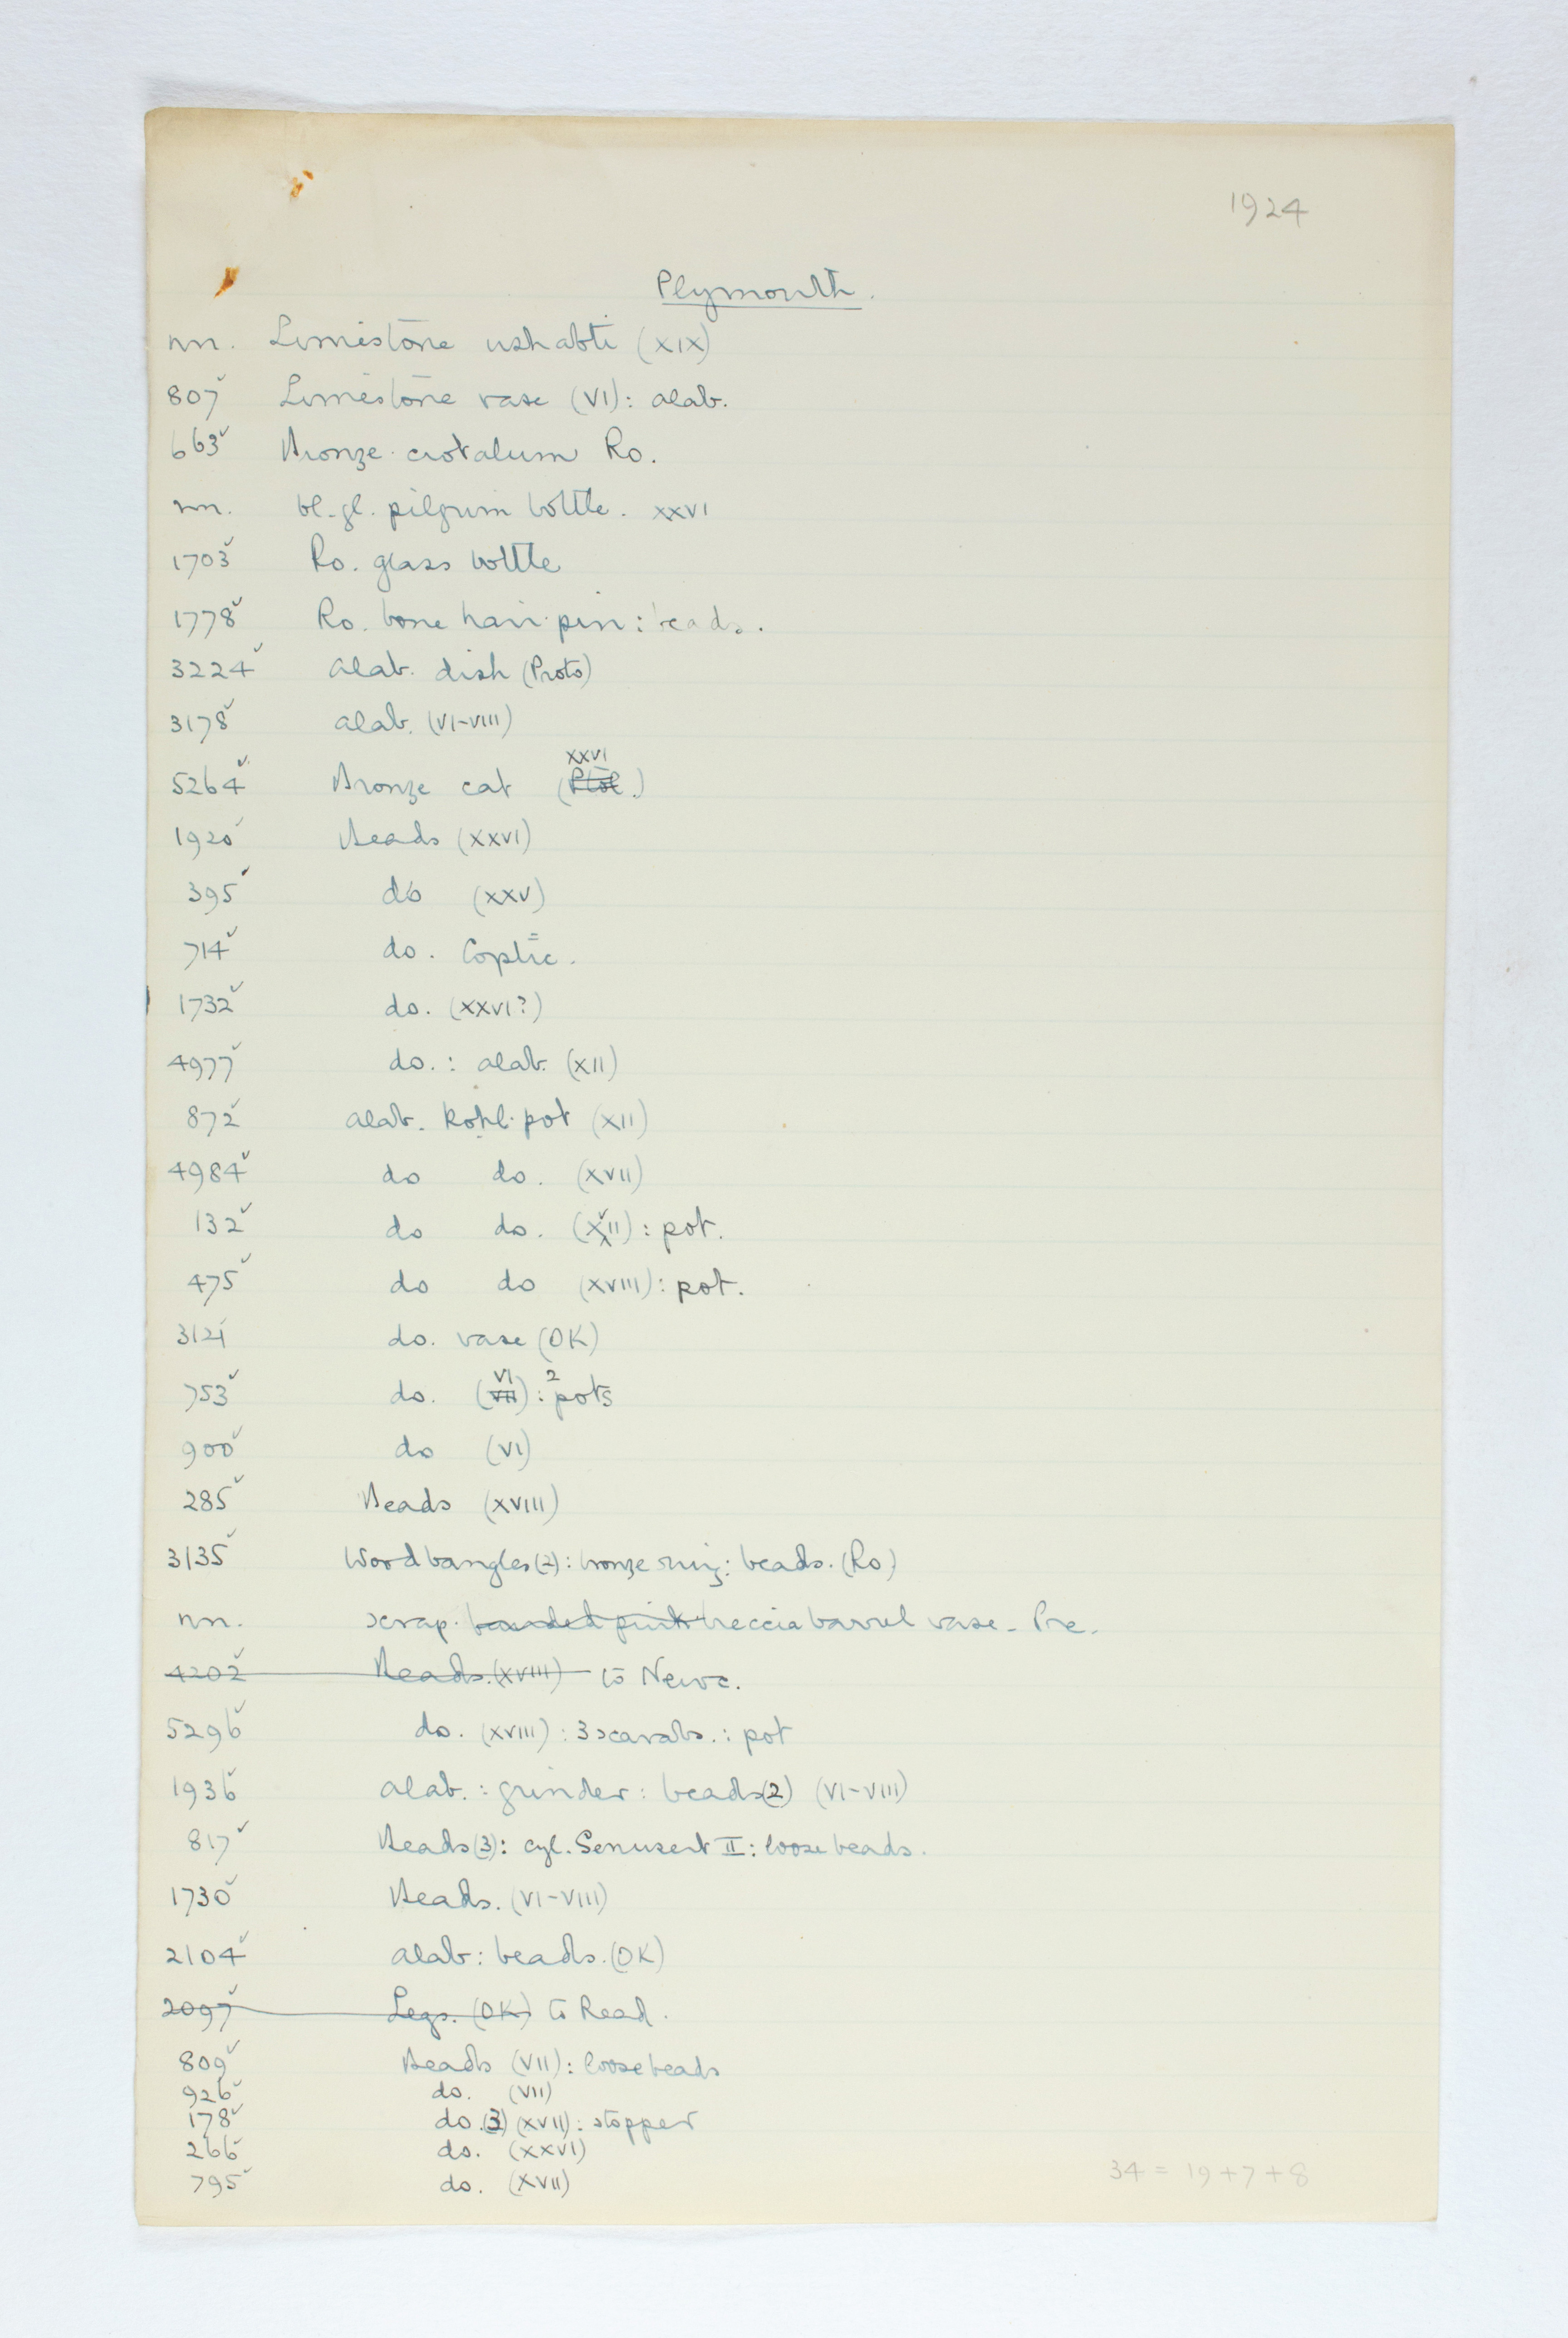 1924
Plymouth.
nn. Limestone ushabti (XIX)
807 ✓ Limestone vase (VI): alab.
663 ✓ Bronze crotalum Ro.
nn. bl. gl. pilgrim bottle. XXVI
1703 ✓ Ro. glass bottle
1778 ✓ Ro. bone hair-pin: beads.
3224 ✓ alab. dish (Proto)
3178 ✓ alab. (VI-VIII)
5264 ✓ Bronze cat (Ptol.) XXVI
1920 ✓ Beads (XXVI)
395 ✓ do (XXV)
714 ✓ do. Coptic.
1732 ✓ do. (XXVI?)
4977 ✓ do.: alab. (XII)
872 ✓ alab. Kohl-pot (XII)
4984 ✓ do do. (XVII)
132 ✓ do do. (XVII): pot.
475 ✓ do do (XVIII): pot.
3121 do. vase (OK)
753 ✓ do. (VII) VI: 2 pots
900 ✓ do (VI)
285 ✓ Beads (XVIII)
3135 ✓ Wood bangles (2): bronze ring: beads. (Ro)
nn. scrap. banded pink breccia barrel vase - Pre.
4202 ✓ Beads. (XVIII) to Newc.
5296 ✓ do. (XVIII): 3 scarabs.: pot
1936 ✓ alab.: grinder: beads (2) (VI-VIII)
817 ✓ Beads (3): cyl. Senusert II: loose beads.
1730 ✓ Beads. (VI-VIII)
2104 ✓ alab: beads. (OK)
2097 ✓ Legs. (OK) to Read.
809 ✓ Beads (VII): loose beads
926 ✓ do. (VII)
178 ✓ do. (3) (XVII): stopper
266 ✓ do. (XXVI)
795 ✓ do. (XVII)
34 = 19+7+8